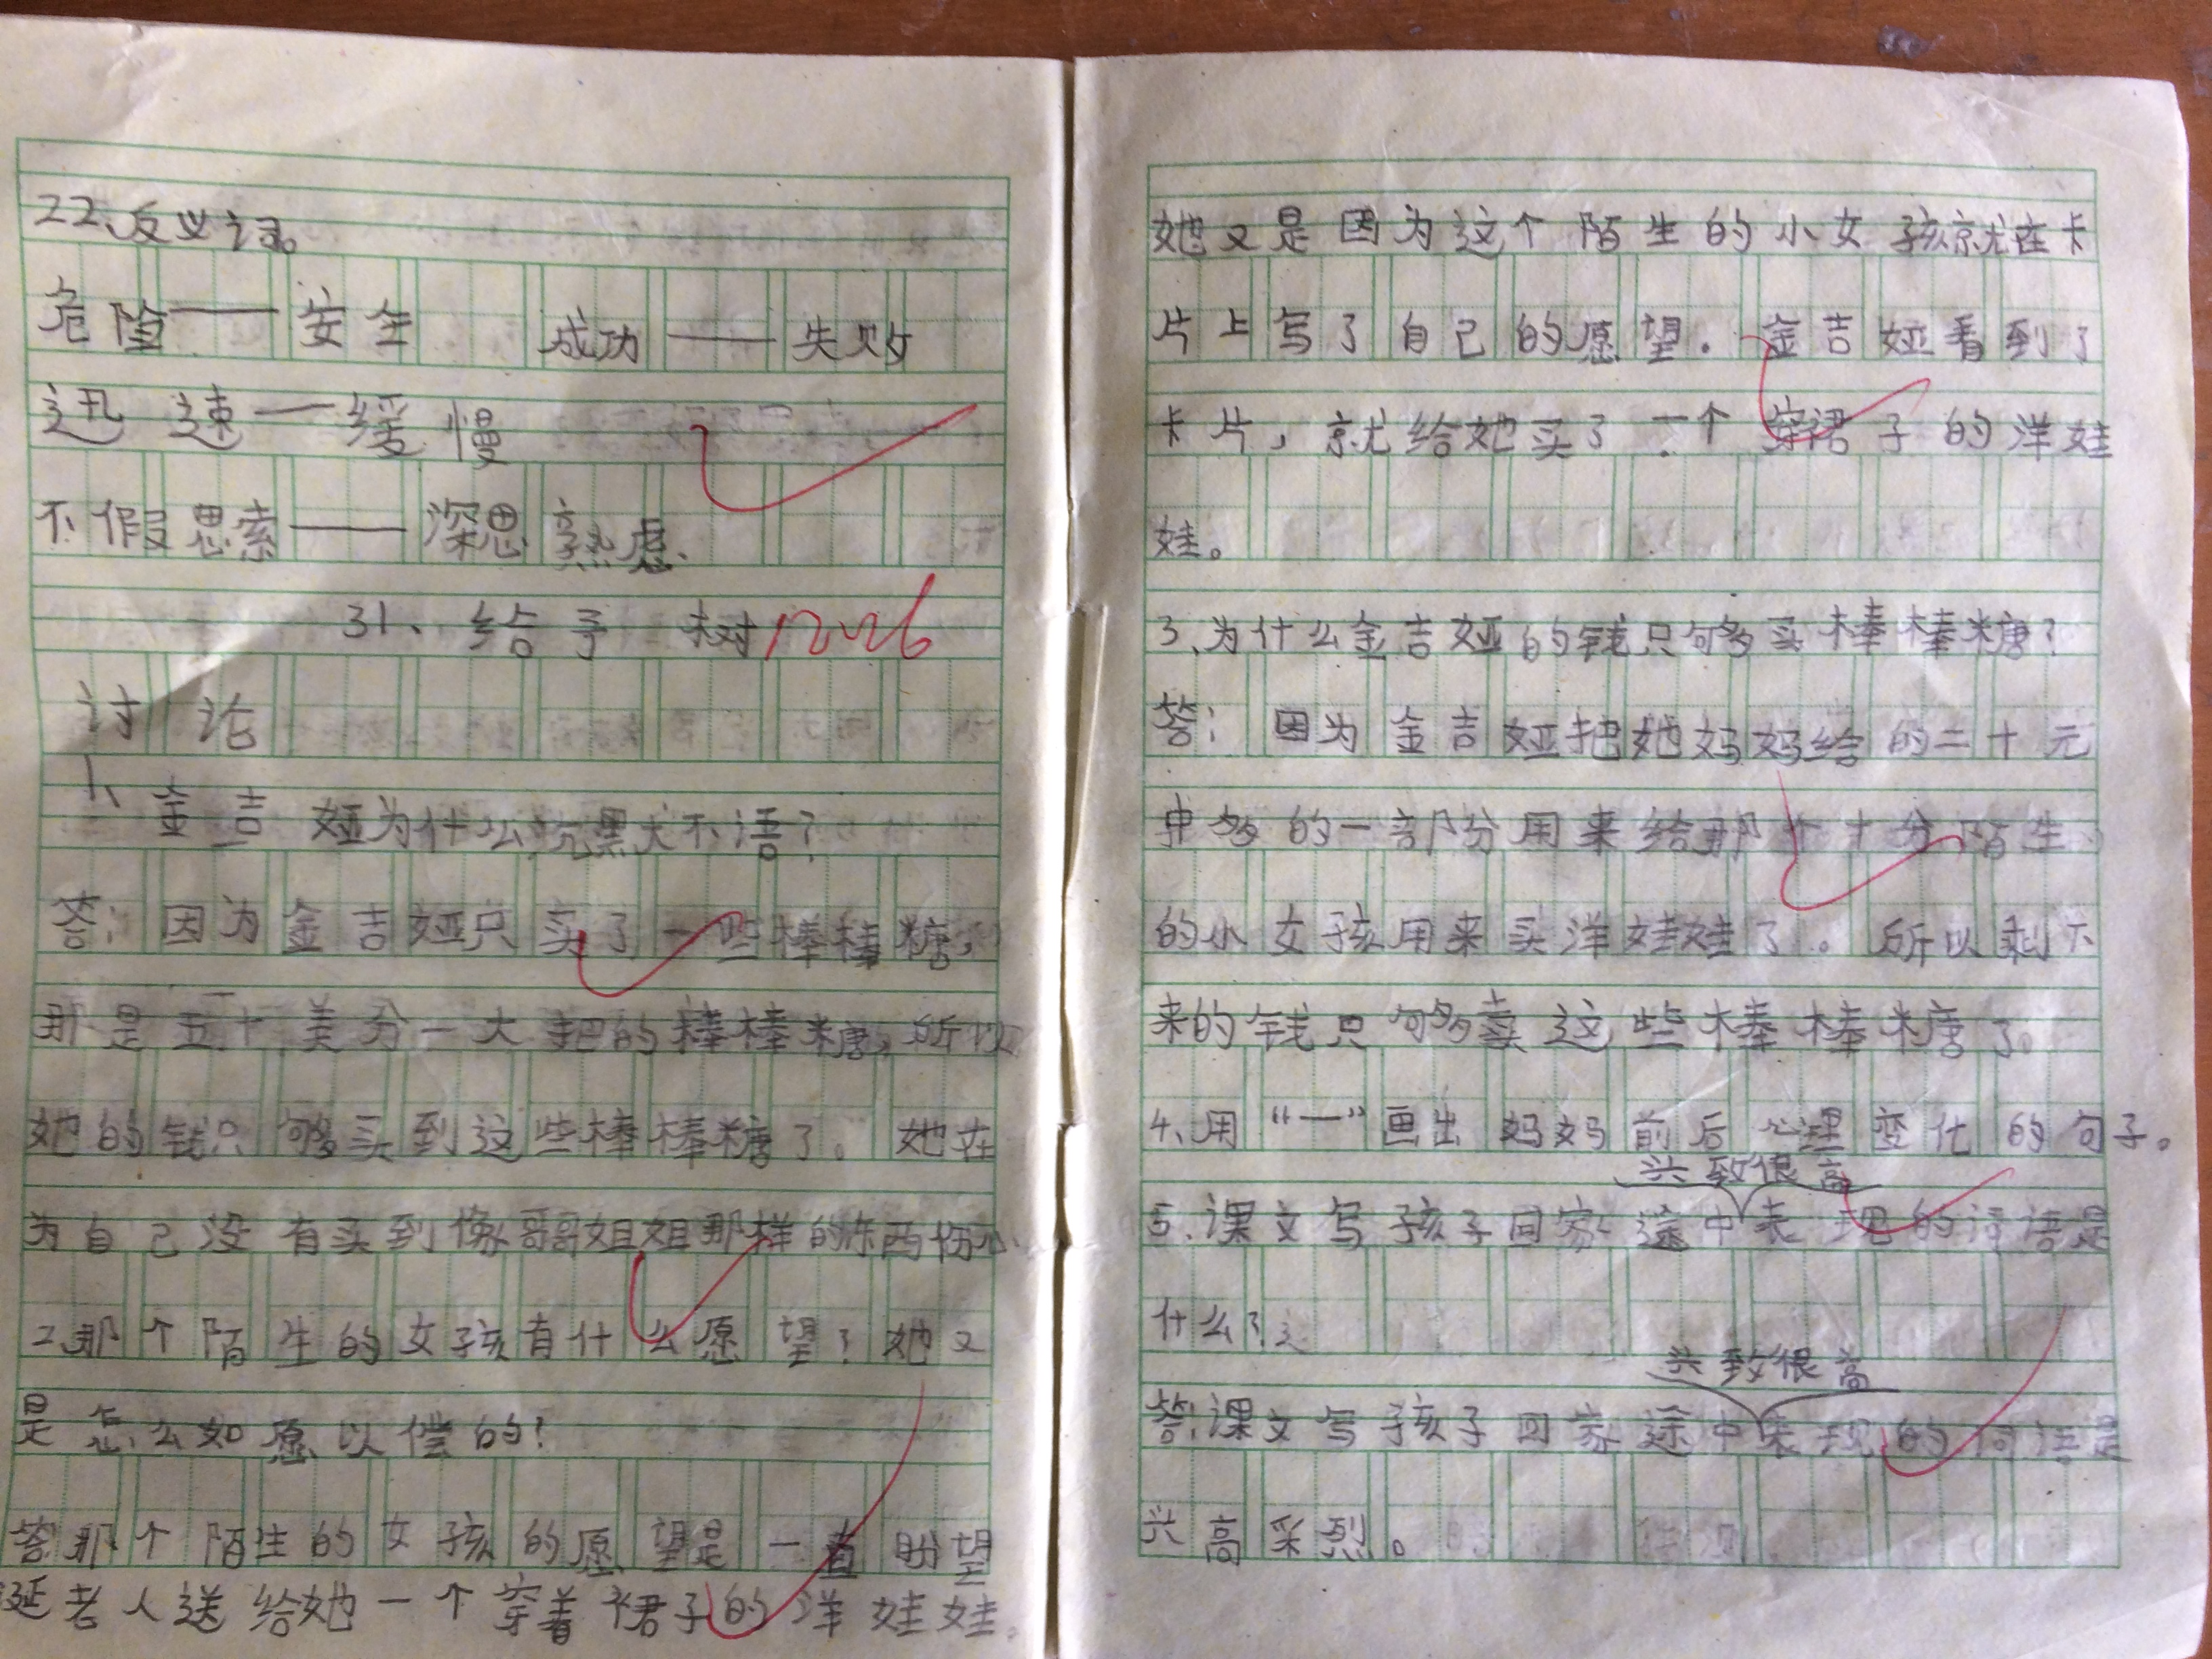 22、反义词。
危险——安全 成功——失败
迅速——缓慢
不假思索——深思熟虑.
31、给予树 12.26
讨论
1、金吉娅为什么沉默不语?
答:因为金吉娅只买了一些棒棒糖,
那是五十美分一大把的棒棒糖,所以
她的钱只够买到这些棒棒糖了。她在
为自己没有买到像哥哥姐姐那样的东西伤心
2、那个陌生的女孩有什么愿望?她又
是怎么如愿以偿的?
答那个陌生的女孩的愿望是一直盼望
诞老人送给她一个穿着裙子的洋娃娃。
她又是因为这个陌生的小女孩就在卡
片上写了自己的愿望.金吉娅看到了
卡片,就给她买了一个穿裙子的洋娃
娃。
3、为什么金吉娅的钱只够买棒棒糖?
答:因为金吉娅把她妈妈给的二十元
中的一部分用来给那个十分陌生
的小女孩用来买洋娃娃了。所以剩下
来的钱只够卖这些棒棒糖了。
4、用“一”画出妈妈前后心理变化的句子。
兴致很高
5.课文写孩子回家途中表现的词语是
什么?
兴致很高
答:课文写孩子回家途中表现的词语是
兴高采烈。